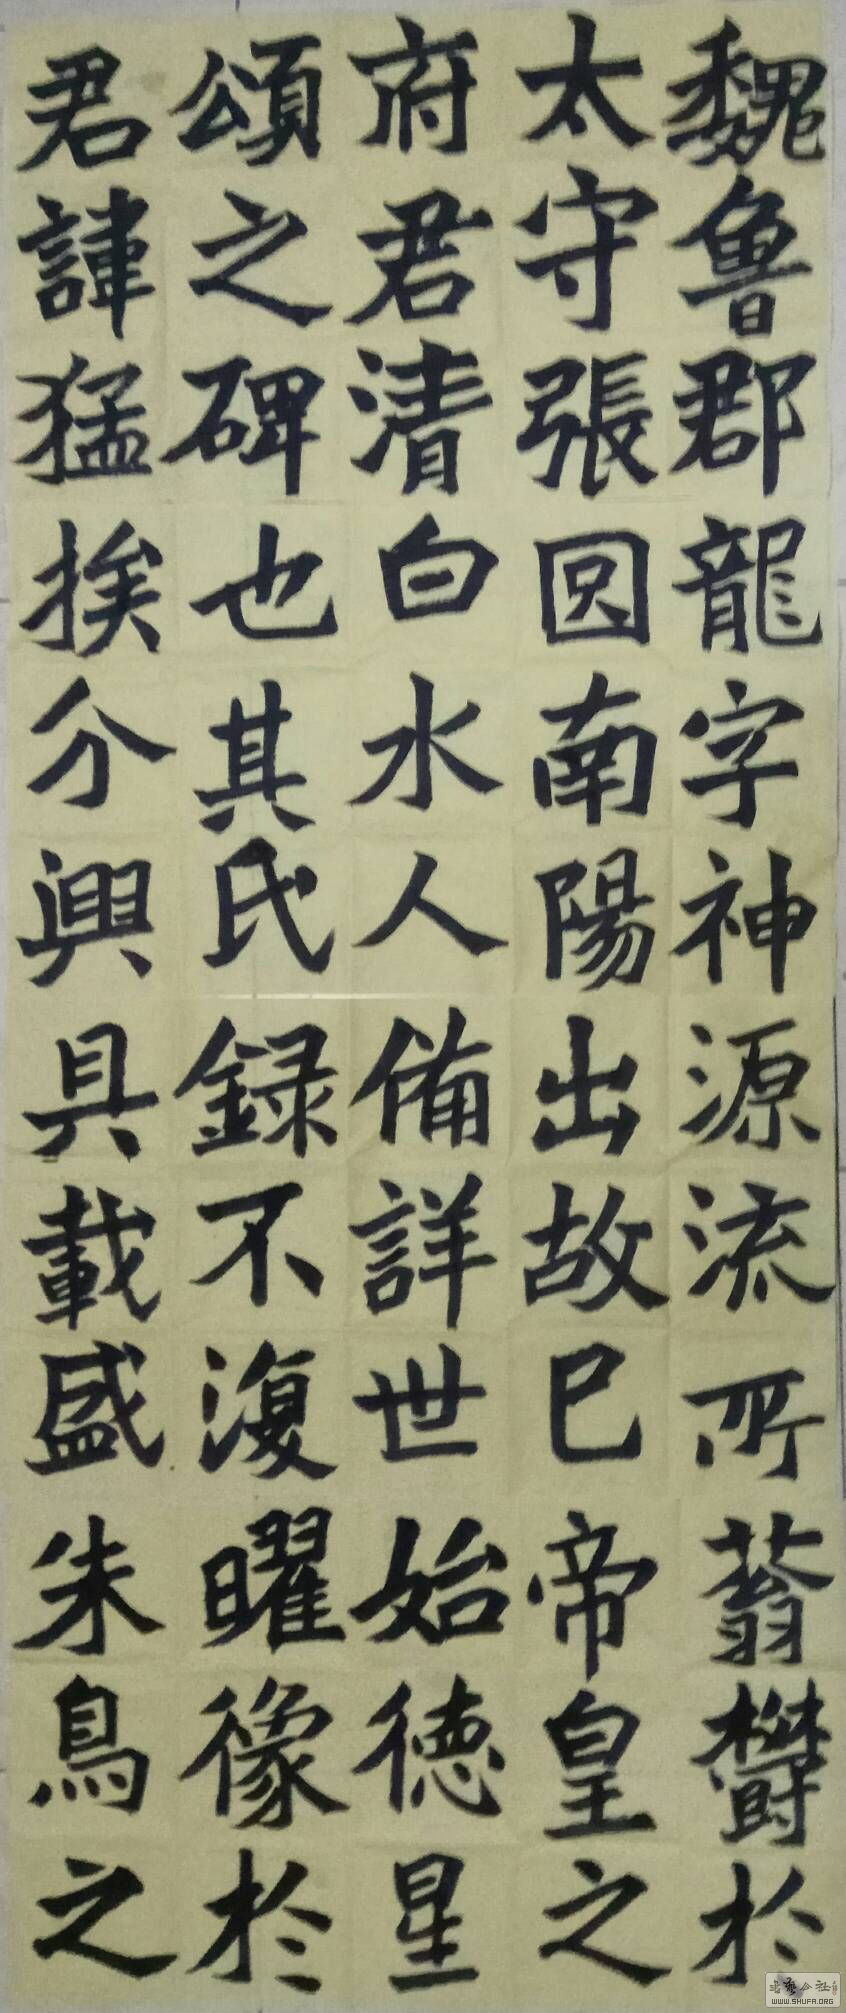 魏魯郡龍字神源流所蓊鬱於
太守張囩南陽出故已帝皇之
府君清白水人備詳世始德星
頌之碑也其氏録不復曜像於
君諱猛挨分興具載盛朱鳥之
WWW.SHUFA.ORG